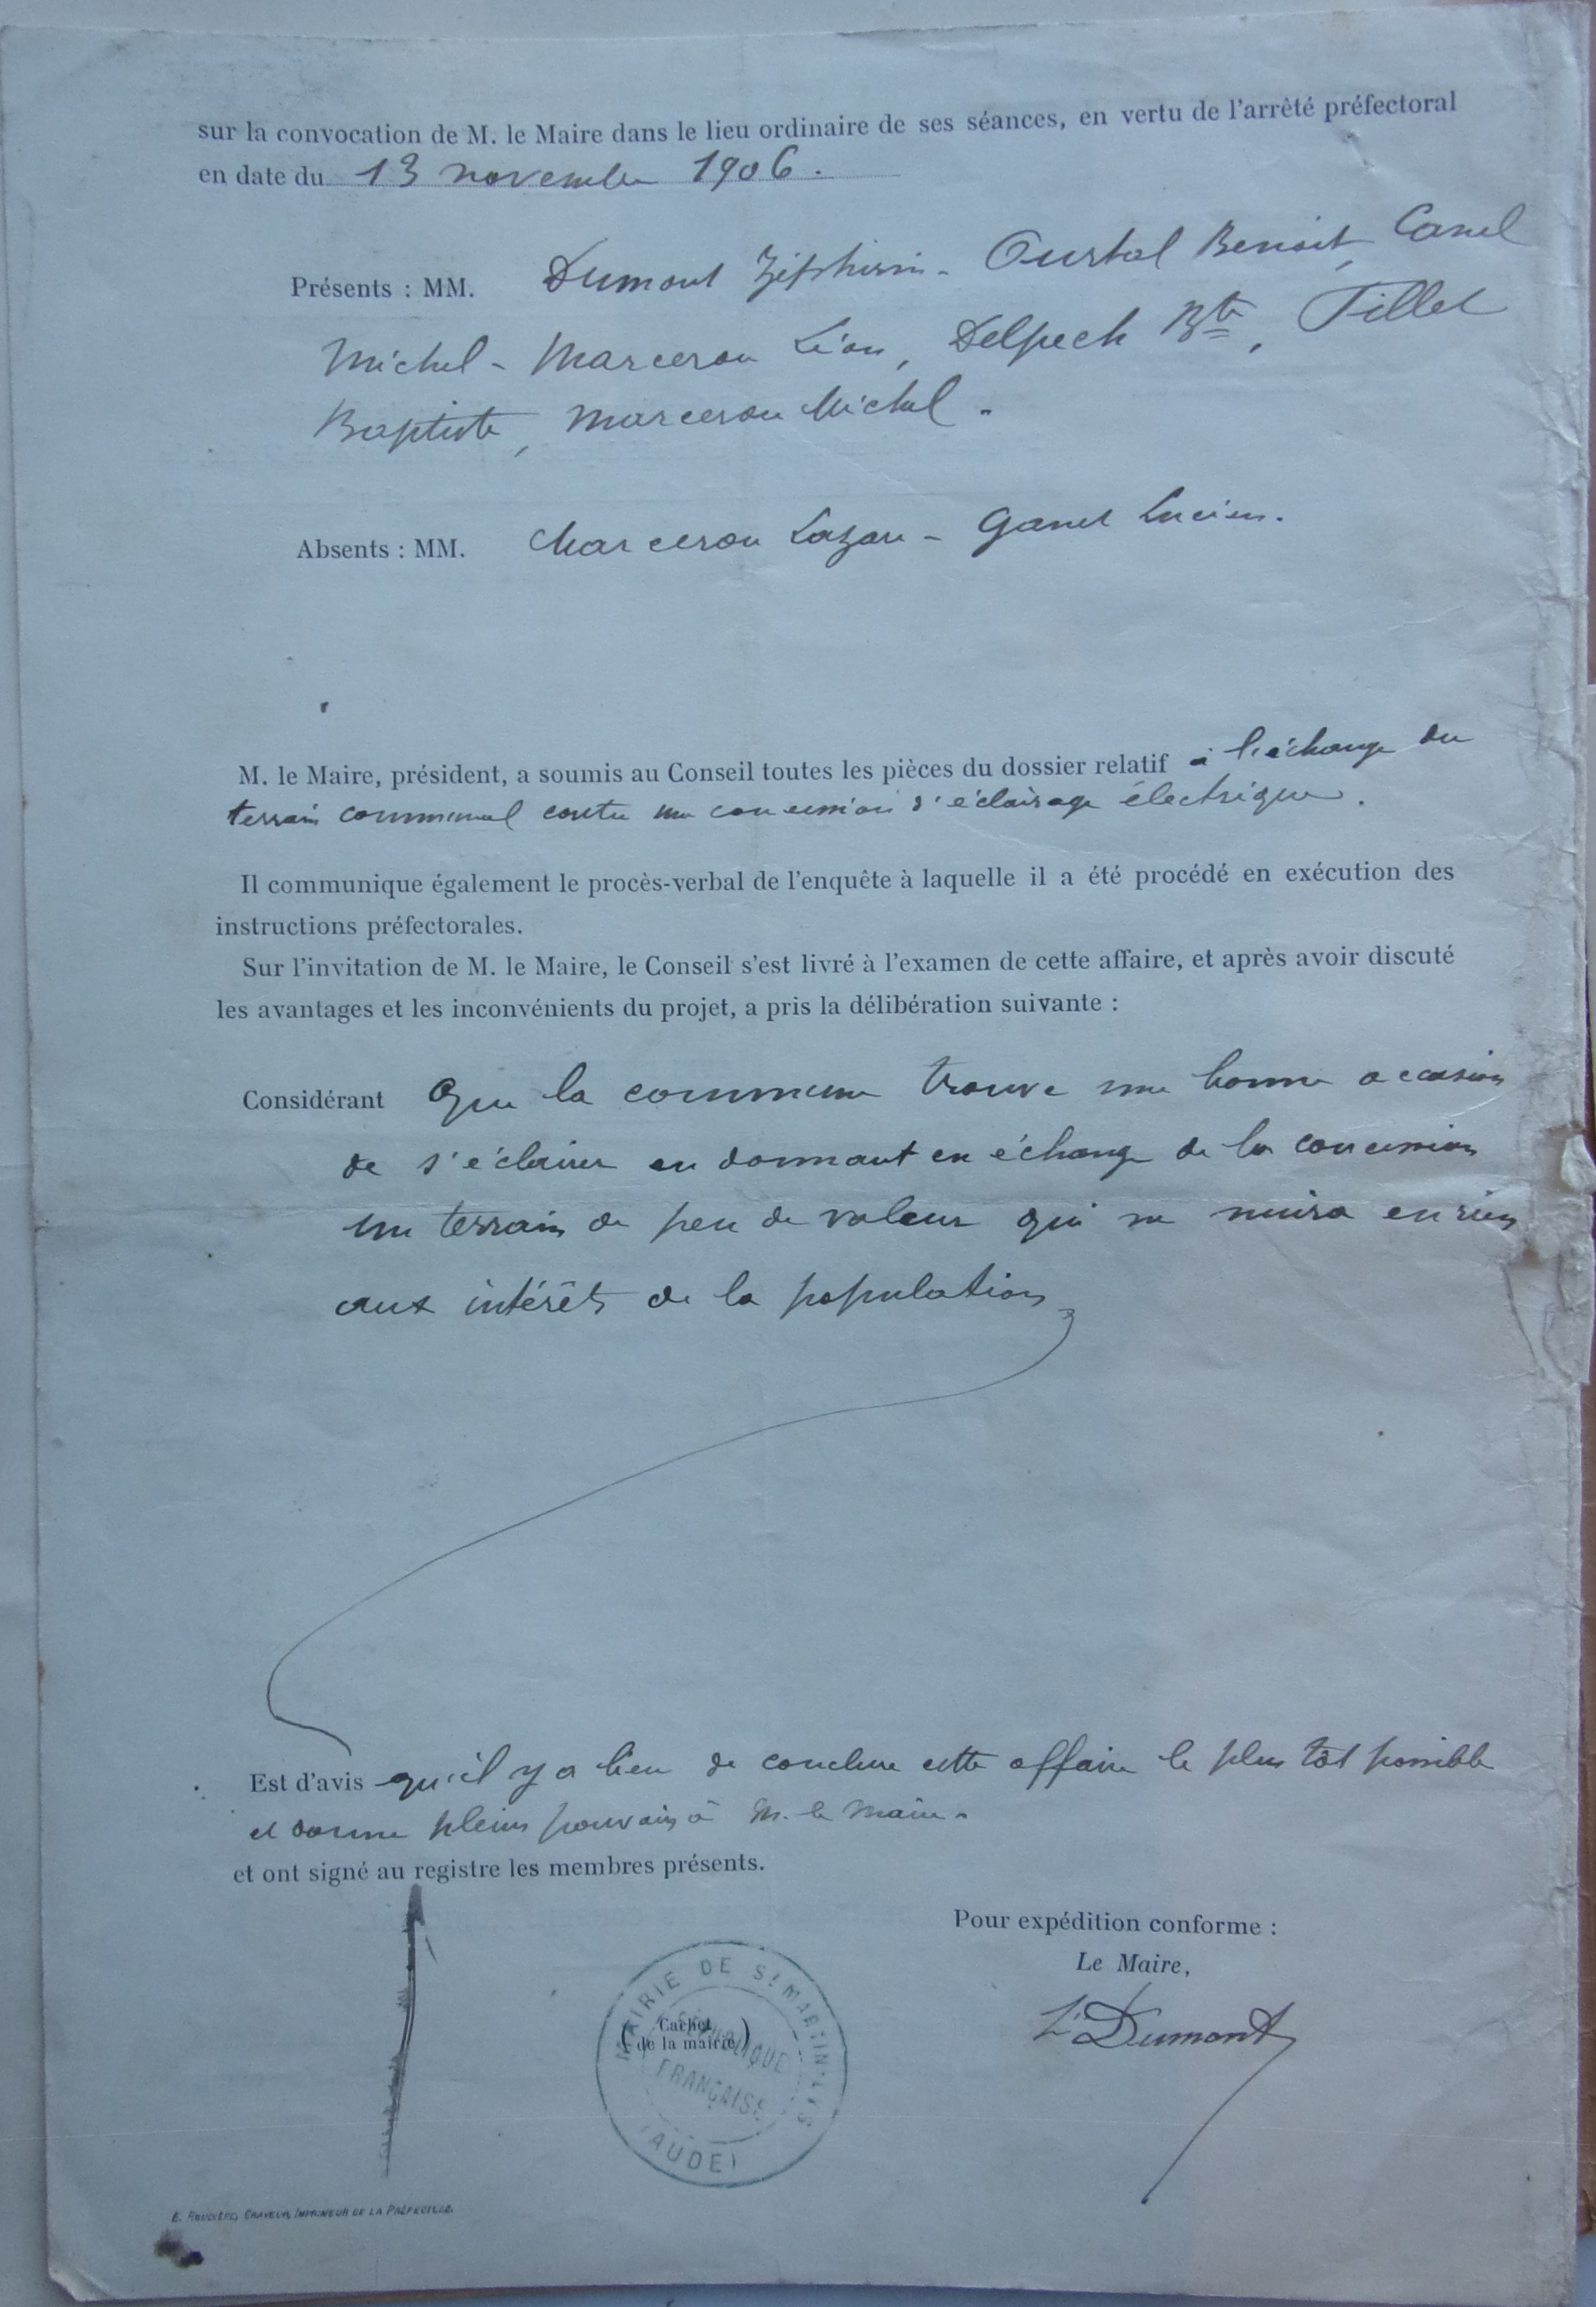 sur la convocation de M. le Maire dans le lieu ordinaire de ses séances, en vertu de l'arrêté préfectoral
en date du 13 novembre 1906.
Présents : MM. Dumont Zéphirin - Oustal Benoit, Canel
Michel - Marceron Léon, Delpech Bte, Tillet
Baptiste, Marceron Michel.
Absents : MM. Marceron Lazare - Lucien.
M. le Maire, président, a soumis au Conseil toutes les pièces du dossier relatif à l'échange du
terrain communal contre une concession d'éclairage électrique.
Il communique également le procès-verbal de l'enquête à laquelle il a été procédé en exécution des
instructions préfectorales.
Sur l'invitation de M. le Maire, le Conseil s'est livré à l'examen de cette affaire, et après avoir discuté
les avantages et les inconvénients du projet, a pris la délibération suivante :
Considérant Que la commune trouve une bonne occasion
de s'éclairer en donnant en échange de la concession
un terrain de peu de valeur qui ne nuira en rien
aux intérêts de la population
Est d'avis qu'il y a lieu de conclure cette affaire le plus tôt possible
et donne pleins pouvoirs à M. le Maire.
et ont signé au registre les membres présents.
Pour expédition conforme :
Le Maire,
Z. Dumont
MAIRIE DE St MARTIN-LYS
RÉPUBLIQUE
FRANÇAISE
(AUDE)
(Cachet
de la mairie)
GRAVEUR, IMPRIMEUR DE LA PRÉFECTURE.